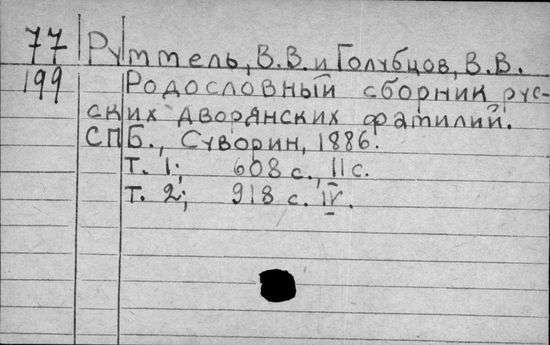 77 Руммель, В.В. и Голубцов, В.В.
199 Родословный сборник рус-
ских дворянских фамилий.
СПБ., Суворин, 1886.
Т. 1; 608 с., II с.
Т. 2; 918 с. IV.